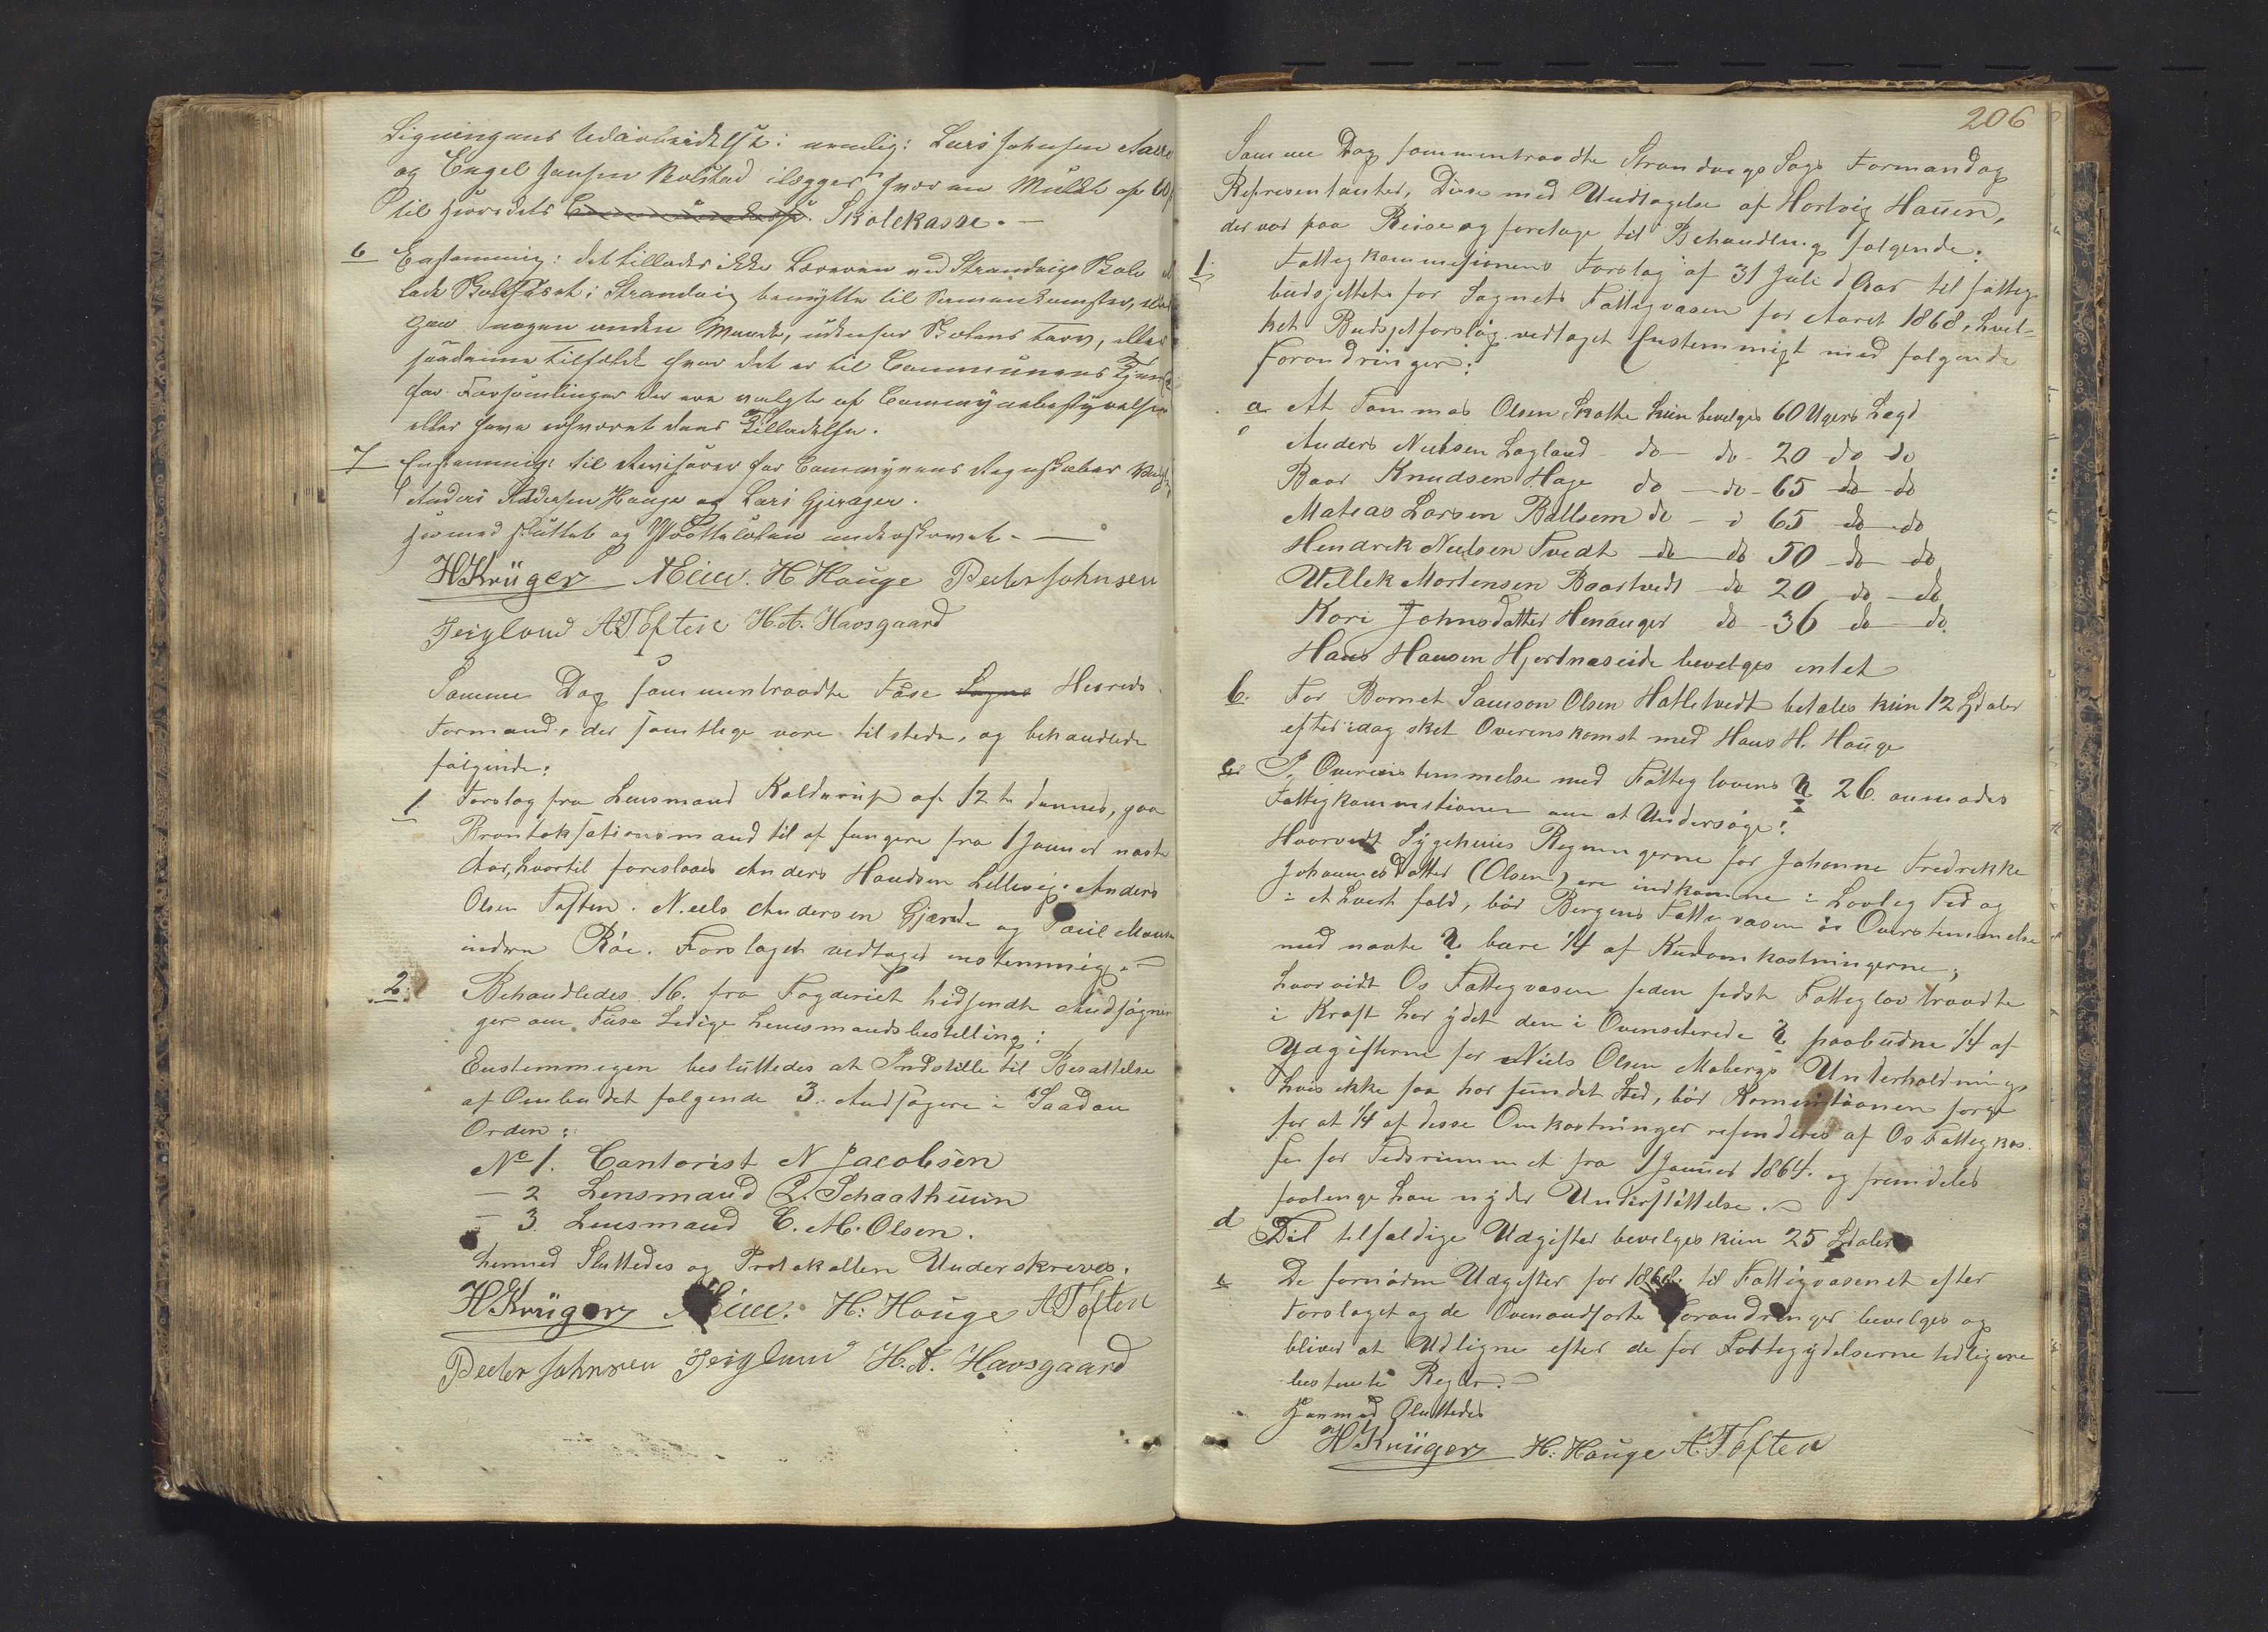 Ligningens Udarbeidelse: nemlig: Lars Johnsen
og Engel Hansen Bolstad ilægges hver en Mulkt af 60
til Herredets Skolekasse.
6 Enstemmig: det tillades ikke Læreren ved Strandvigs Skole at
lade Skolehuset i Strandvig benytte til Sammenkomster, eller
paa nogen anden Maade, udenfor Skolens Tarv, eller
saadanne Tilfælde hvor det er til Communens
for Forsamlinger der ere valgte af Communebestyrelsen
eller have erhvervet dens Tilladelse.
7 Enstemmig: til Revisorer for Communens Regnskaber
Anders Andersen Hauge og Lars Gjerager.
Hermed sluttet og Protokolen underskrevet.
HKrüger H Hauge Peder Johnsen
A Toften H. A. Havsgaard
Samme Dag sammentraadte Fuse Sogns Herreds
Formænd, der samtlige vare tilstede, og behandlede
følgende:
1 Forslag fra Lensmand Koldrup af 12te dennes, paa
Brantaksationsmænd til at fungere fra 1 Januar næste
Aar, hvortil foreslaaes Anders Handsen Lillevig. Anders
Olsen Toften. Neels Andersen Gjærde og Paul
indre Röe. Forslaget vedtaget enstemmig.
2. Behandledes 16. fra Fogderiet hidsendte Andsögnin
ger om Fuse Ledige Lensmandsbestilling:
Enstemmigen besluttedes at Indstille til Besættelse
af Ombudet følgende 3. Andsögere i Saadan
Orden:
No 1. Cantorist N Jacobsen
- 2 Lensmand L. Schaathuun
- 3. Lensmand C. M. Olsen.
hermed Sluttedes og Protokollen Underskreves.
HKrüger H: Hauge A Toften
Peder Johnsen H. A. Havsgaard
206
Samme Dag sammentraadte Strandvigs Sogs Formænd og
Representanter, Disse med Undtagelse af Hartvig Hauen,
der var paa Reise og foretoge til Behandling følgende:
1. Fattigkommisionens Forslag af 31 Juli d Aar til fattig
budsjettet for Sognets Fattigvæsen for Aaret 1868, hvil=
ket Budsjetforslag vedtaget Enstemmigt med følgende
Forandringer:
a At Tommas Olsen Skotte kun bevelges 60 Ugers Lægd
Anders Neelsen Lægland do do 20 do do
Baar Knudsen Hage do do 65 do do
Matias Larsen Ballsem do d 65 do do
Hendrek Neelsen Tvedt do do 50 do do
Villek Mortensen Baartvedt do 20 do do
Kari Johnsdatter Henanger do 36 do do
Hans Hansen Hjertnæseide bevelges entet
b. For Barnet Samson Olsen Hatletvedt betales kun 12 Spdaler
efter idag sket Overenskomst med Hans H. Hauge
c I Overenstemmelse med Fattiglovens § 26. anmodes
Fattigkommistionen om at Undersøge!
Hvorvedt Sygehuus Regningerne for Johanne Fredrekke
Johannesdatter (Olsen) ere indkomne i Lovleg Tid og
i et hvert fald, bør Bergens Fattigvæsen i Overstemmelse
med nævte § bære 1/4 af Kuromkostningerne;
hvorvidt Os Fattigvæsen seden sedste Fattiglov traadte
i Kraft har ydet den i Ovenseterede § paabudne 1/4 af
Udgifterne for Niels Olsen Mobergs Underholdning
hvis ekke saa har fundet Sted, bør Kommistionen sørge
for at 1/4 af disse Omkostninger refunderes af Os Fattigkas
se for Tedsrummet fra 1 Januar 1864. og fremdeles
saalenge han nyder Understøttelse.
d Til telfældige Udgifter bevelges kun 25 Spdaler
e De fornødne Udgifter for 1868. til Fattigvæsenet efter
Forslaget og de Ovenanførte Forandringer bevelges og
bliver at Udligne efter de for Fattigydelserne tidligere
bestemte Regler.
Hermed Sluttedes
HKrüger H: Hauge A Toften